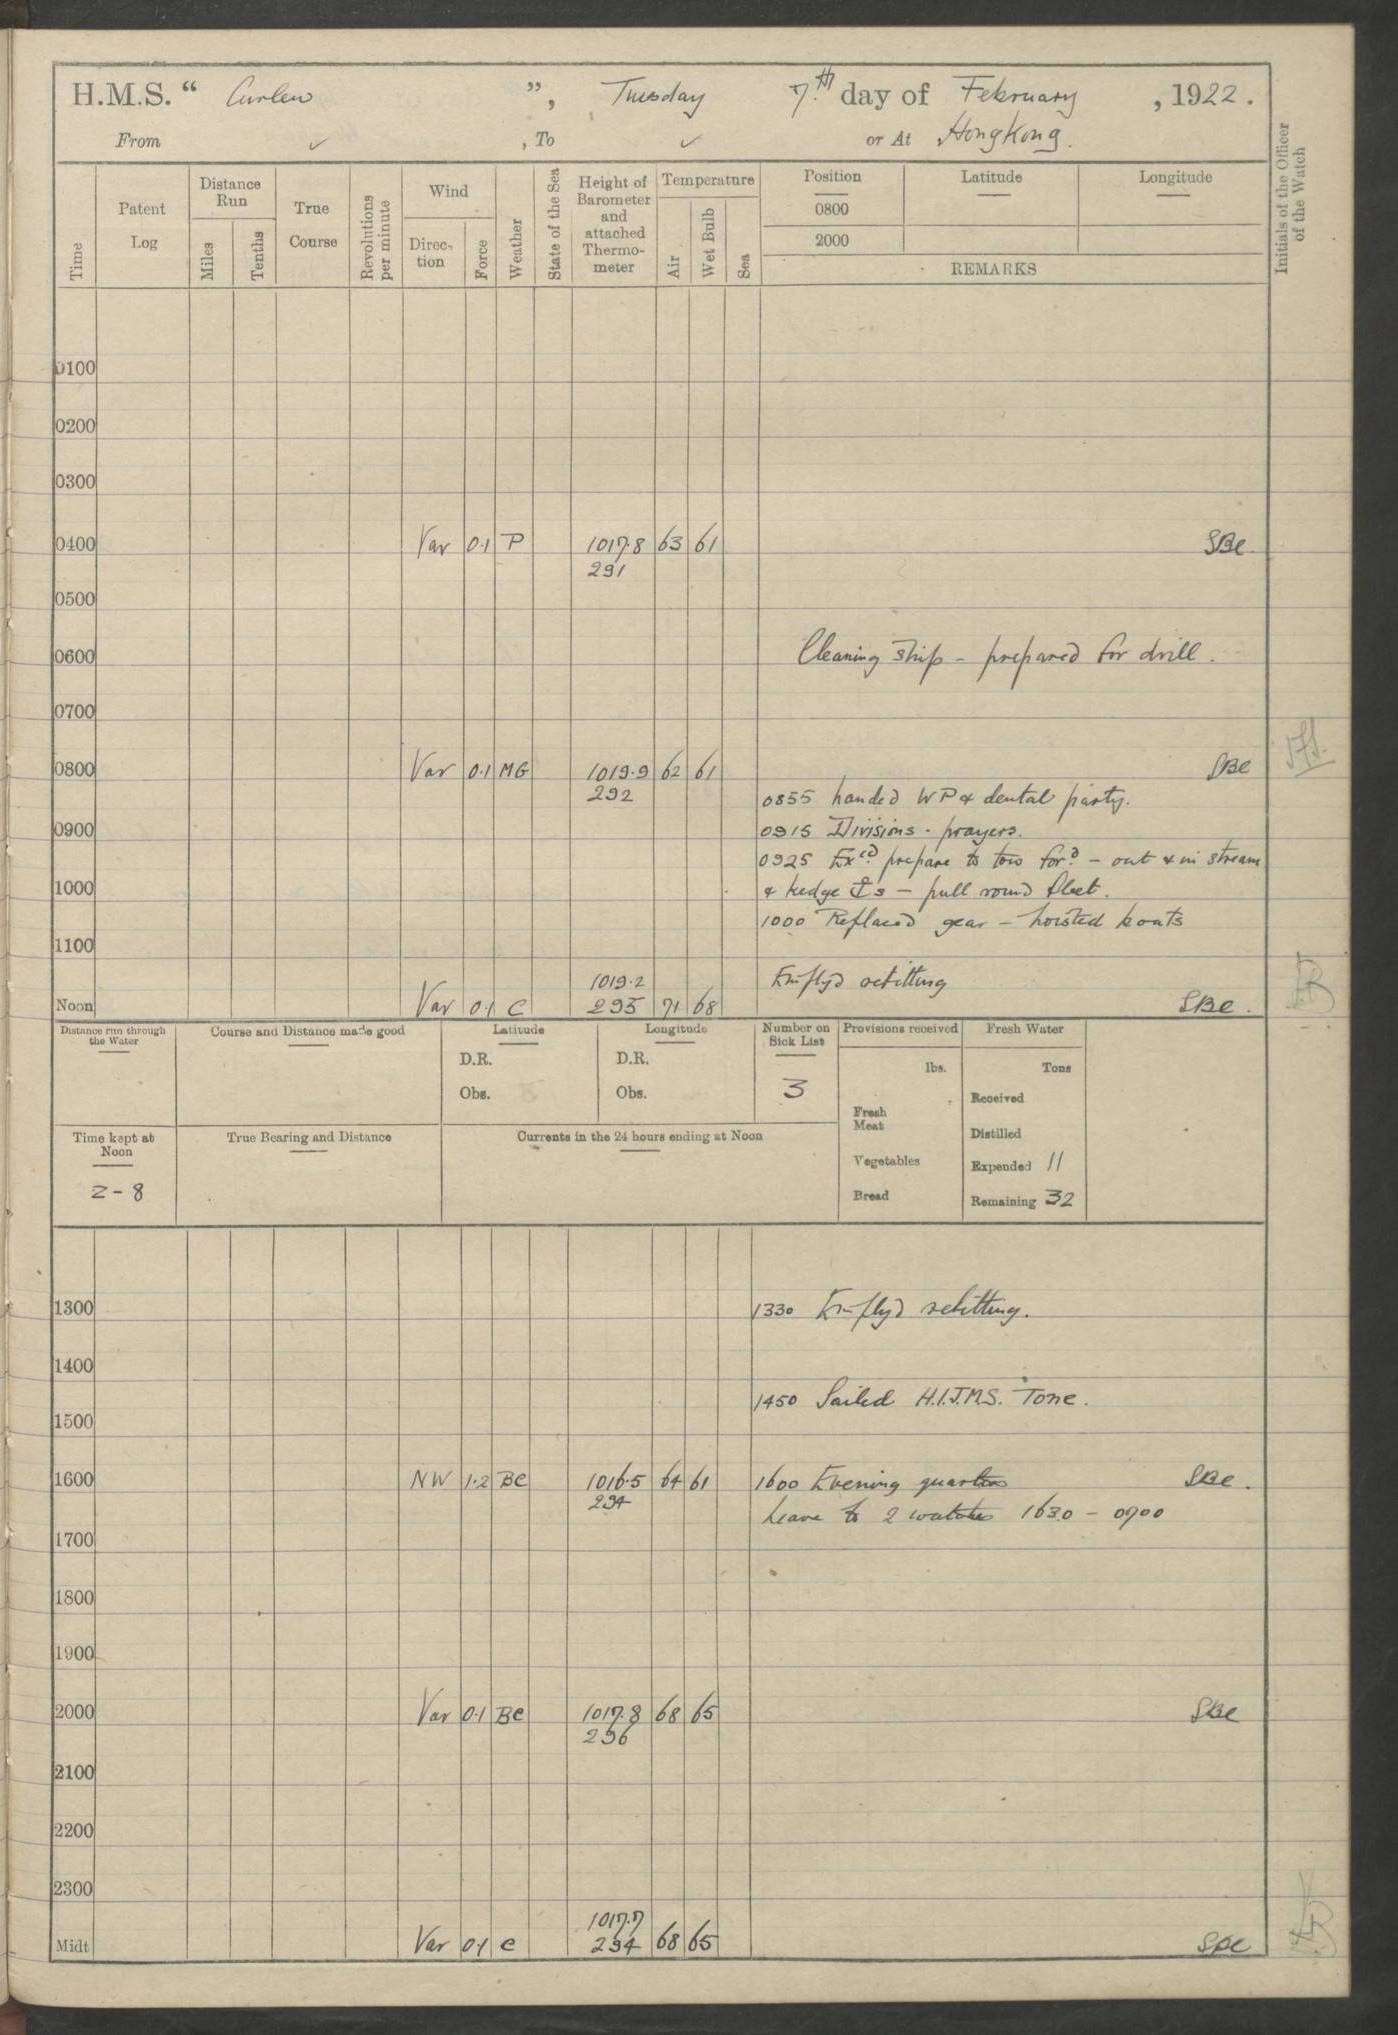 H.M.S. " Curlew ", Tuesday 7.th day of February, 1922.
From ✓, To ✓ or At HongKong.
Time
Patent Log
Distance Run
Miles
Tenths
True Course
Revolutions per minute
Wind
Direction
Force
Weather
State of the Sea
Height of Barometer and attached Thermometer
Temperature
Air
Wet Bulb
Sea
Position Latitude Longitude
0800
2000
REMARKS
Initials of the Officer of the Watch
0100
0200
0300
0400 Var 0.1 P 1017.8 63 61 SBe
291
0500
0600 Cleaning ship - prepared for drill.
0700
0800 Var 0.1 MG 1019.9 62 61 SBe
292
0855 handed WP & dental party.
0900 0915 Divisions - prayers.
0925 Excd prepare to tow for.d - out & in stream
1000 & kedge ⚓s - pull round fleet.
1000 Replaced gear - hoisted boats
1100
1019.2 Employd refitting
Noon Var 0.1 C 295 71 68 SBe.
Distance run through the Water
Course and Distance made good
Latitude
D.R.
Obs.
Longitude
D.R.
Obs.
Number on Sick List
3
Provisions received
lbs.
Fresh Meat
Vegetables
Bread
Fresh Water
Tons
Received
Distilled
Expended 11
Remaining 32
Time kept at Noon
Z-8
True Bearing and Distance
Currents in the 24 hours ending at Noon
1300 1330 Employd refitting.
1400
1450 Sailed H.I.J.M.S. Tone.
1500
1600 NW 1.2 BC 1016.5 64 61 1600 Evening quarters SBe.
294 Leave to 2 watches 1630 - 0700
1700
1800
1900
2000 Var 0.1 BC 1017.8 68 65 SBe
296
2100
2200
2300
1017.7
Midt Var 0.1 C 294 68 65 SBe